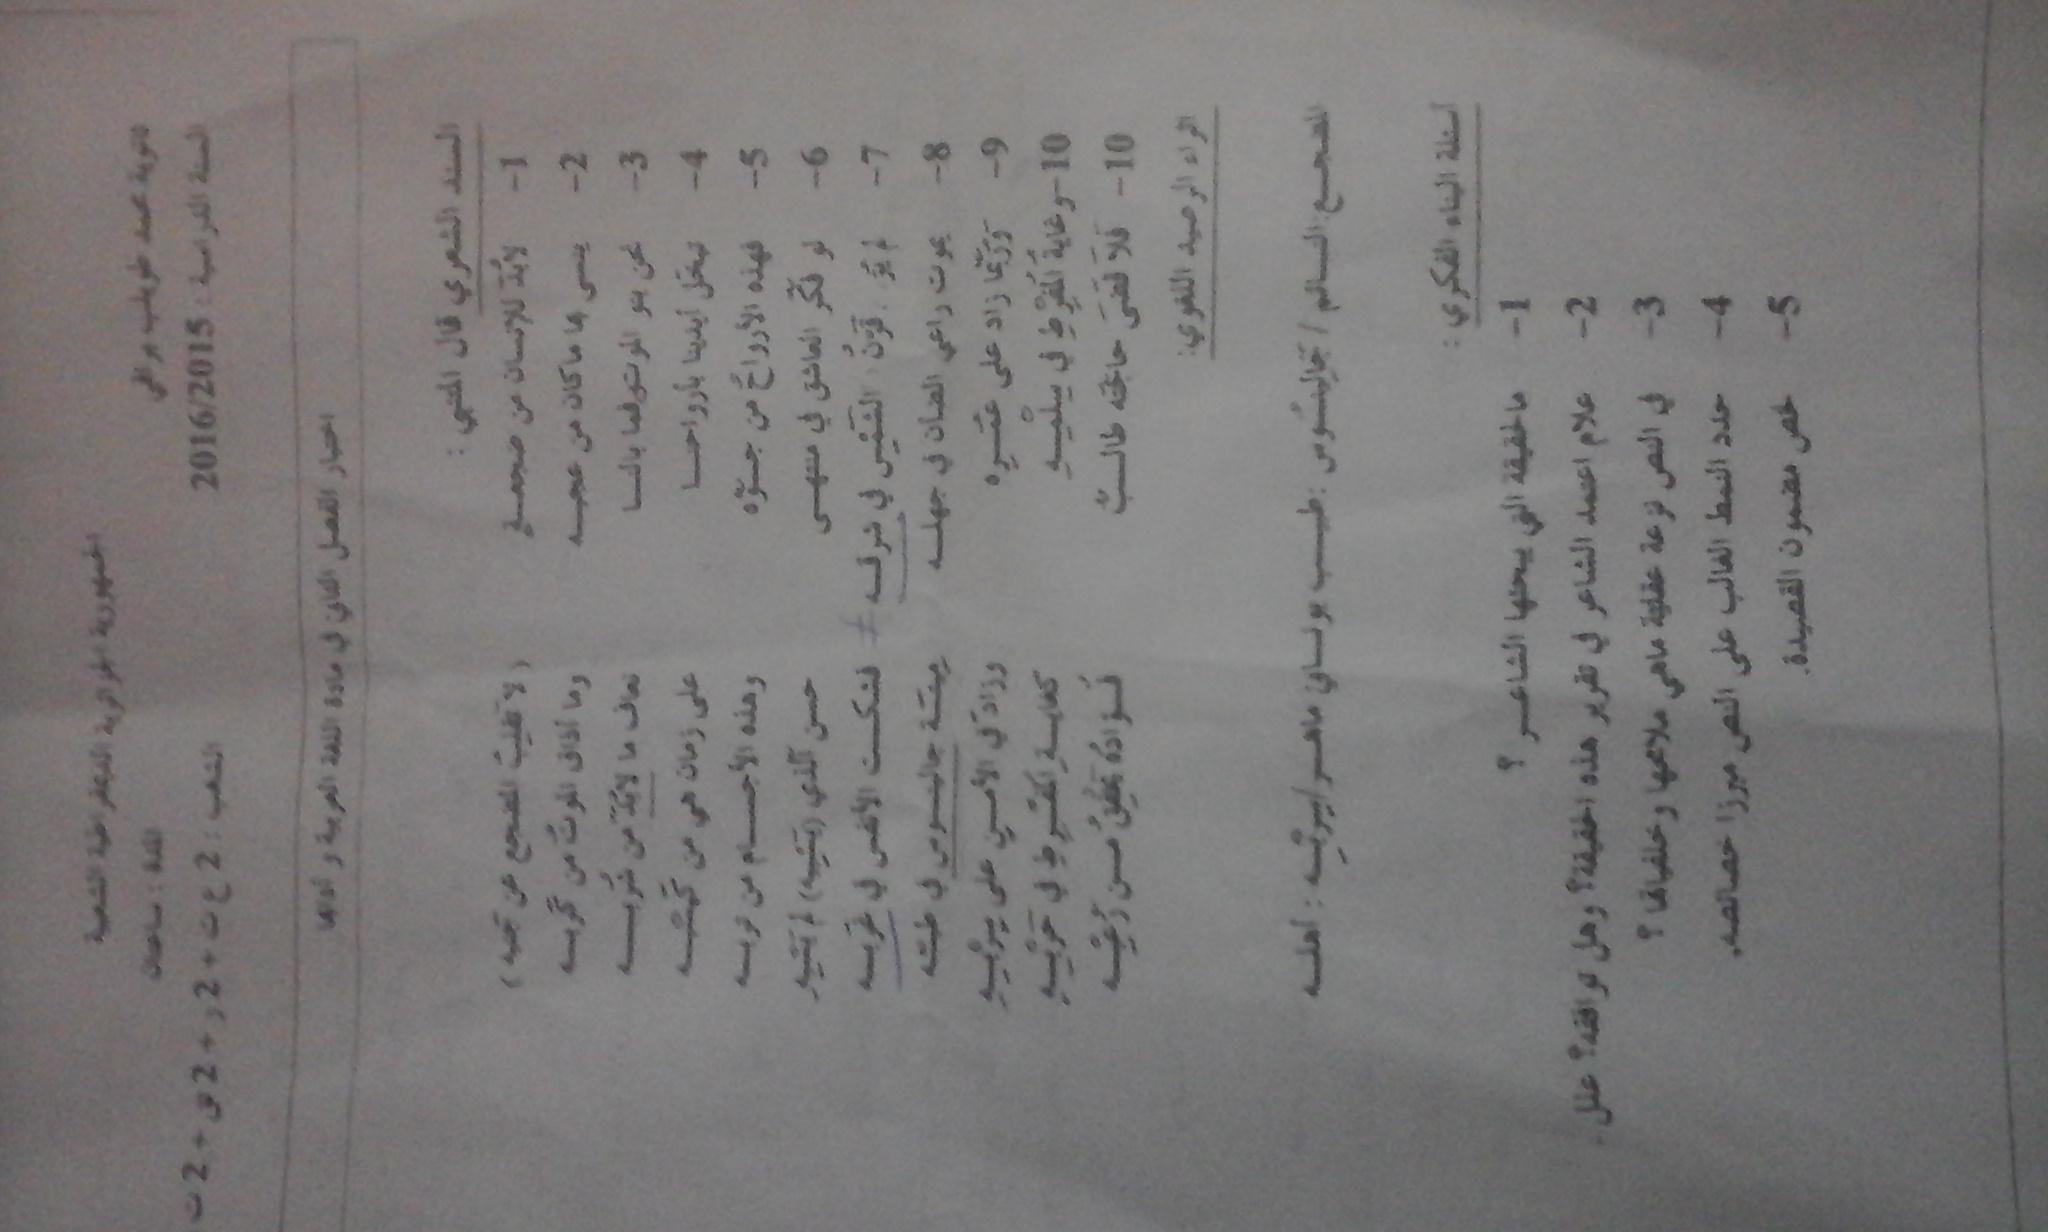 الجمهورية الجزائرية الديمقراطية الشعبية
ثانوية محمد طويلب براقي المدة : ساعتان
السنة الدراسية : 2016/2015 الشعب : 2 ع ت + 2 ر + 2 تق + 2 ت
اختبار الفصل الثاني في مادة اللغة العربية و آدابها
السند الشعري قال المتنبي :
1- لابُدَّ للإنسان من ضجعـــةٍ ( لا تقلِبُ المضجع عن جَنبه )
2- ينسى بها ماكان من عجبـــه وما أذاق الموتُ من كَربـــه
3- نحن بنو الموتى فما بالنـــا نعاف ما لابُدَّ من شُربـــه
4- تبخل أيدينا بأرواحنـــا على زمان هي من كَسْبـــه
5- فهذه الأرْواحُ من جـــوّه وهذه الأجســـام من تربـــه
6- لو فكّر العاشق في منتهـــى حسن الَّذي (يَسْبيه) لم يَسْبِهِ
7- لم يُرَ : قَرْنُ الشَمْسِ في شرقـــه ≠ فشكـــت الأنفس في غربـــه
8- يموت راعي الضـان في جهلـــه مِيتَـــة جالينـــوس في طبّـــه
9- وَرُبَّمَا زاد على عمْـــرِه وزاد في الأمْـــنِ على سِرْبِـــهِ
10- وغايةُ المُفْرِطِ في سِلْمِـــهِ كغايـــة المُفْـــرِطِ في حَرْبِـــهِ
10- فَلاَ قَضَى حَاجَتَه طالـــبٌ فُـــؤادُهُ يَخْفِقُ مـــن رُعْبِـــه
اثراء الرصيد اللغوي:
جَالِينُـــوس :طبيـــب يونـــاني ماهـــر/سِرْبِـــه : أهلـــه
أسئلة البناء الفكري :
1- ماالحقيقة التي يسجلها الشاعـــر ؟
2- علام اعتمد الشاعر في تقرير هذه الحقيقة؟ وهل توافقه؟ علل.
3- في النص نزعة عقلية ماهي ملامحها و خلفياتها ؟
4- حدد النمط الغالب على النص مبرزا خصائصه.
5- لخص مضمون القصيدة.